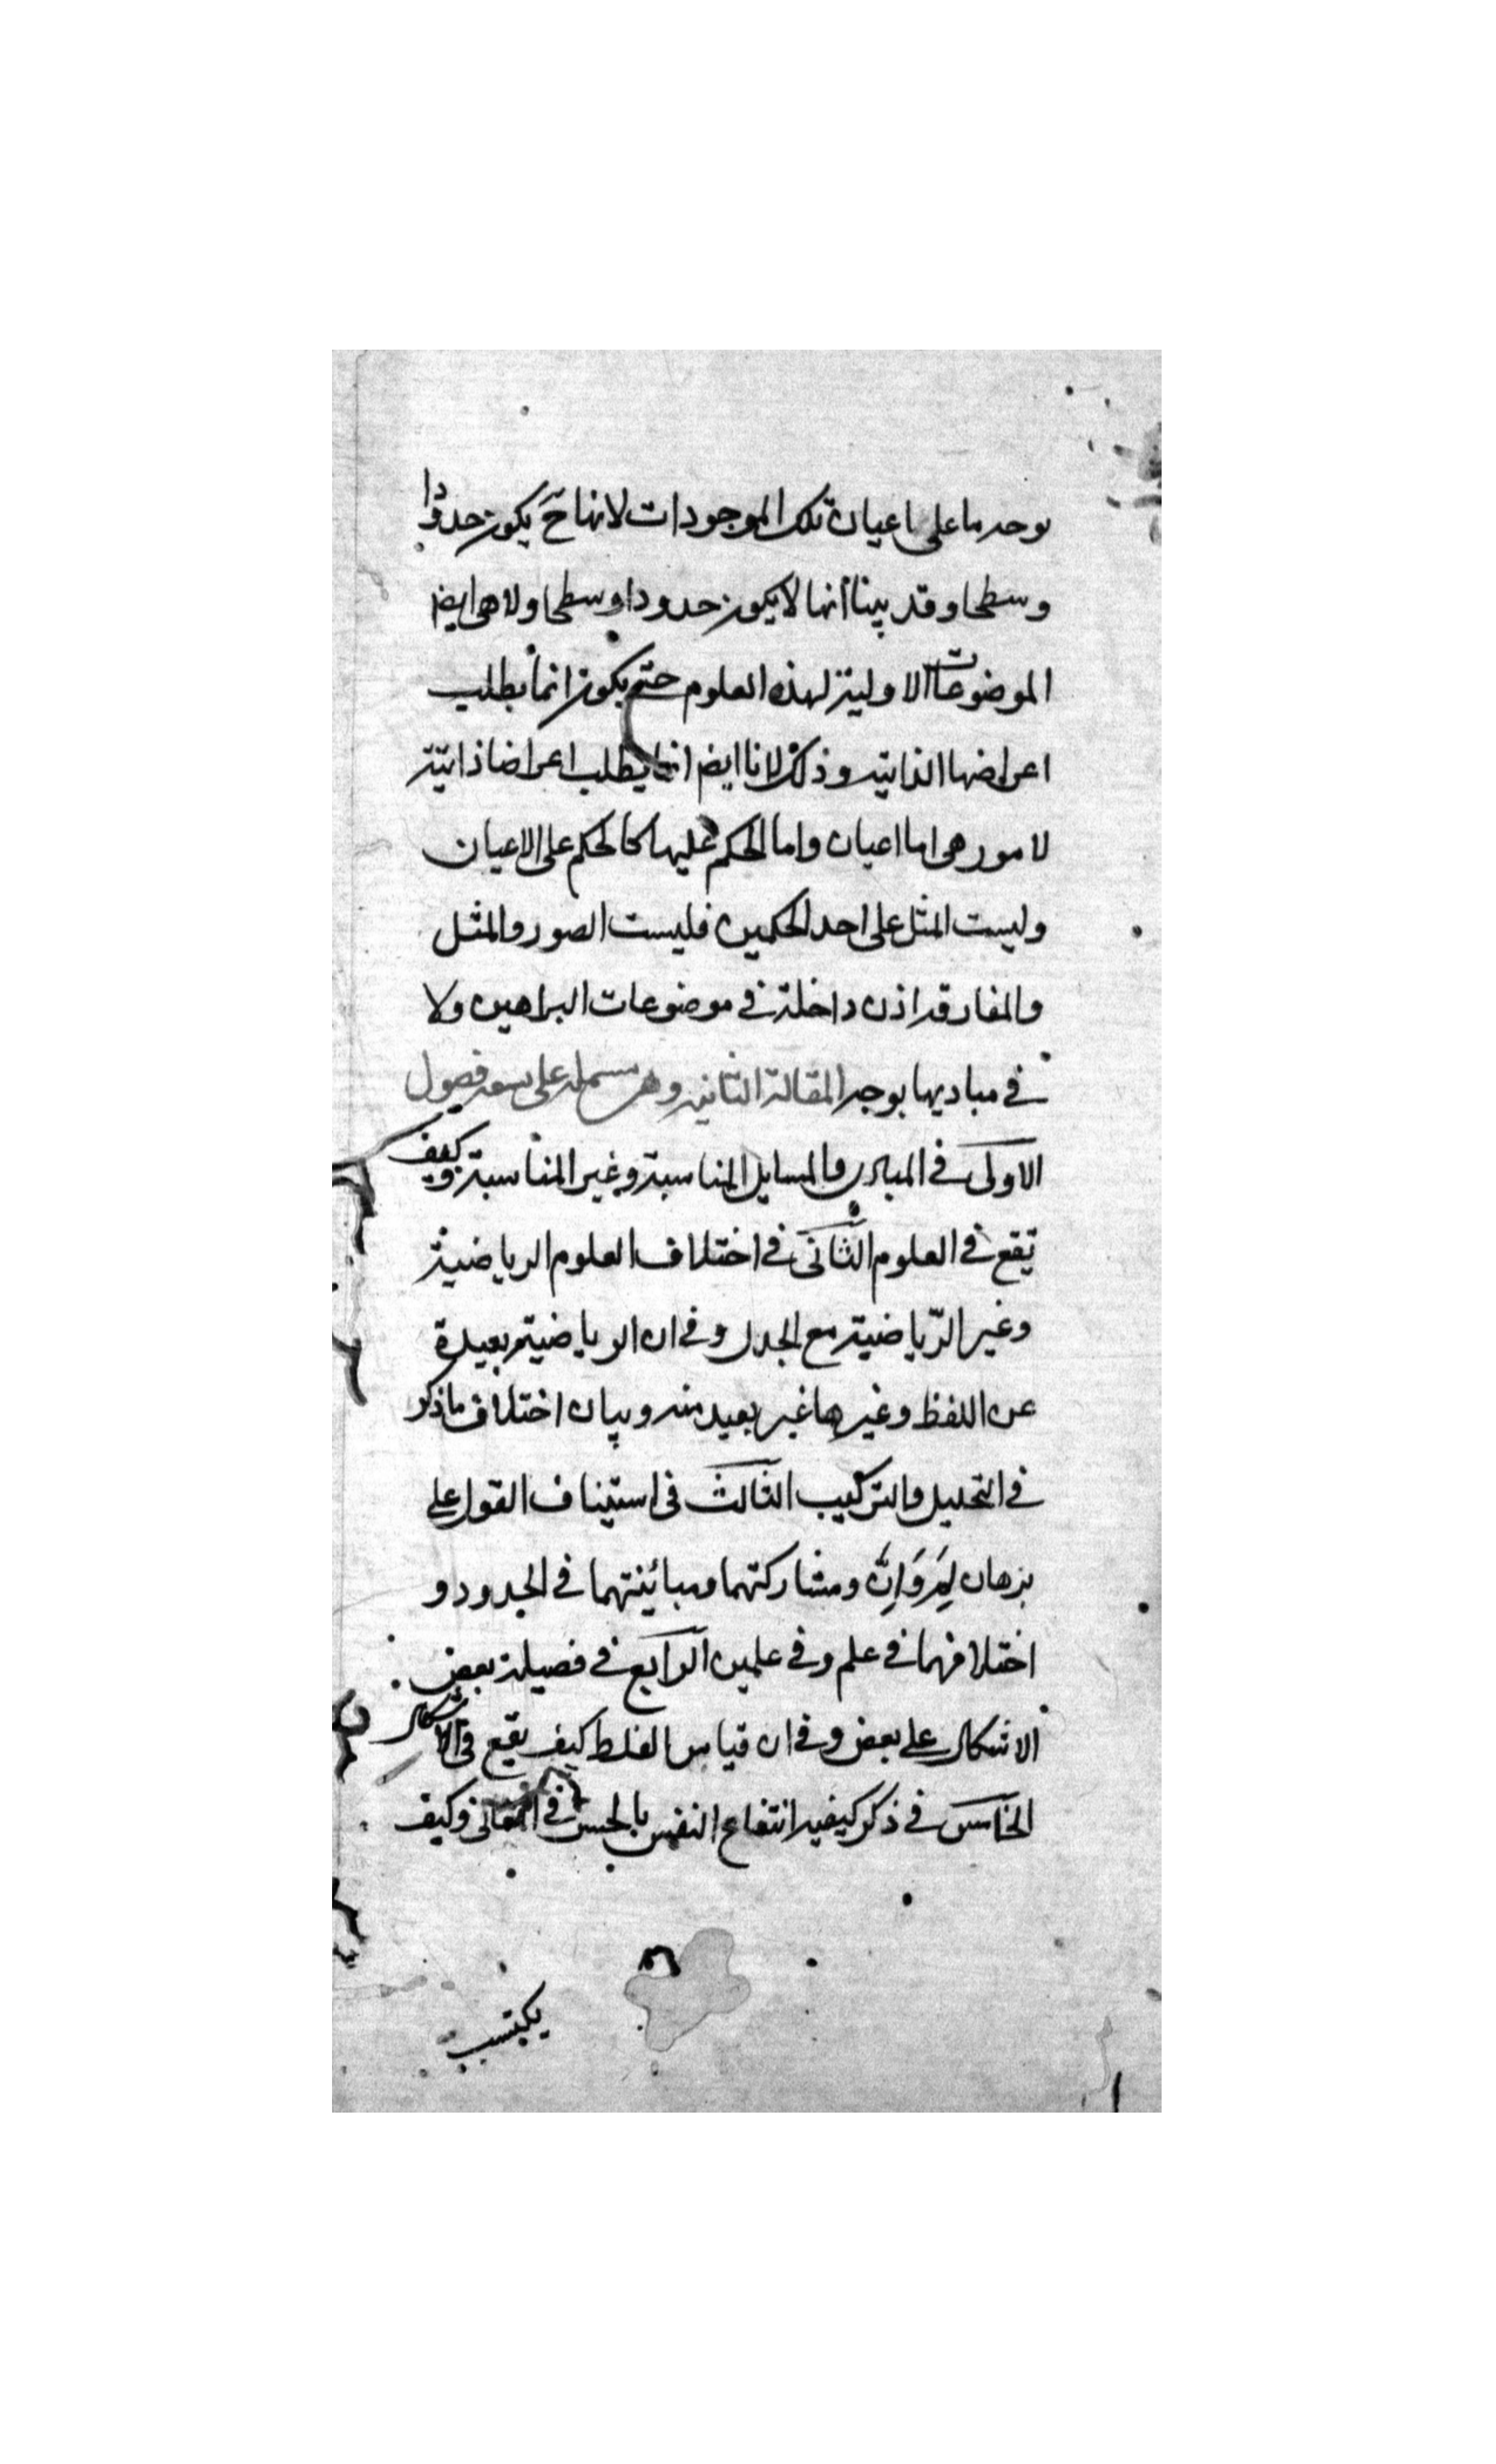 بوجه ما على اعيان تلك الموجودات لانها ح يكون حدودا
وسطى وقد بينا أنها لا يكون حدودا وسطى ولا هى ايض
الموضوعات الاولية لهذه العلوم حتى يكون انما يطلب
اعراضها الذاتية وذلك لانا ايض انما يطلب اعراضا ذاتية
لامور هى اما اعيان واما الحكم عليها كالحكم على الاعيان
وليست المثل على احد الحكمين فليست الصور والمثل
والمفارقة اذن داخلة فى موضوعات البراهين ولا
فى مباديها بوجه المقالة الثانية وهى مشتملة على تسعة فصول
الاولى فى المبادى والمسايل المناسبة وغير المناسبة وكيف
تقع فى العلوم الثانى فى اختلاف العلوم الرياضية
وغير الرّياضية مع الجدل وفى ان الرياضية بعيدة
عن اللفظ وغيرها غير بعيد منه وبيان اختلاف ما ذكر
فى التحليل والتركيب الثالث فى استيناف القول على
برهان لِمَ وَاِنَّ ومشاركتهما ومبائنتهما فى الحدود و
اختلافهما فى علم وفى علمين الرابع فى فضيلة بعض
الاشكال على بعض وفى ان قياس الغلط كيف يقع فى الاشكال
الخامس فى ذكر كيفية انتفاع النفس بالحس فى المعانى وكيف
يكتسب